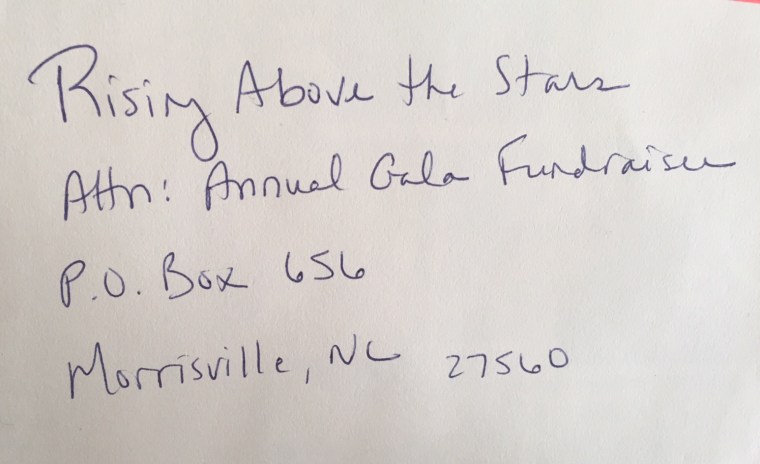 Rising Above the Stars
Attn: Annual Gala Fundraiser
P.O. Box 656
Morrisville, NC 27560